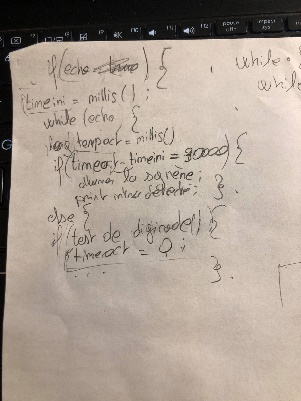 if (echo) {
timeini = millis() ;
while (echo {
tempact = millis()
if (timeact - timeini = 90000) {
allumer la sirène ;
print intrus détecté ; }
else {
if (test de digicode() {
timeact = 0 ;
... }
while
while